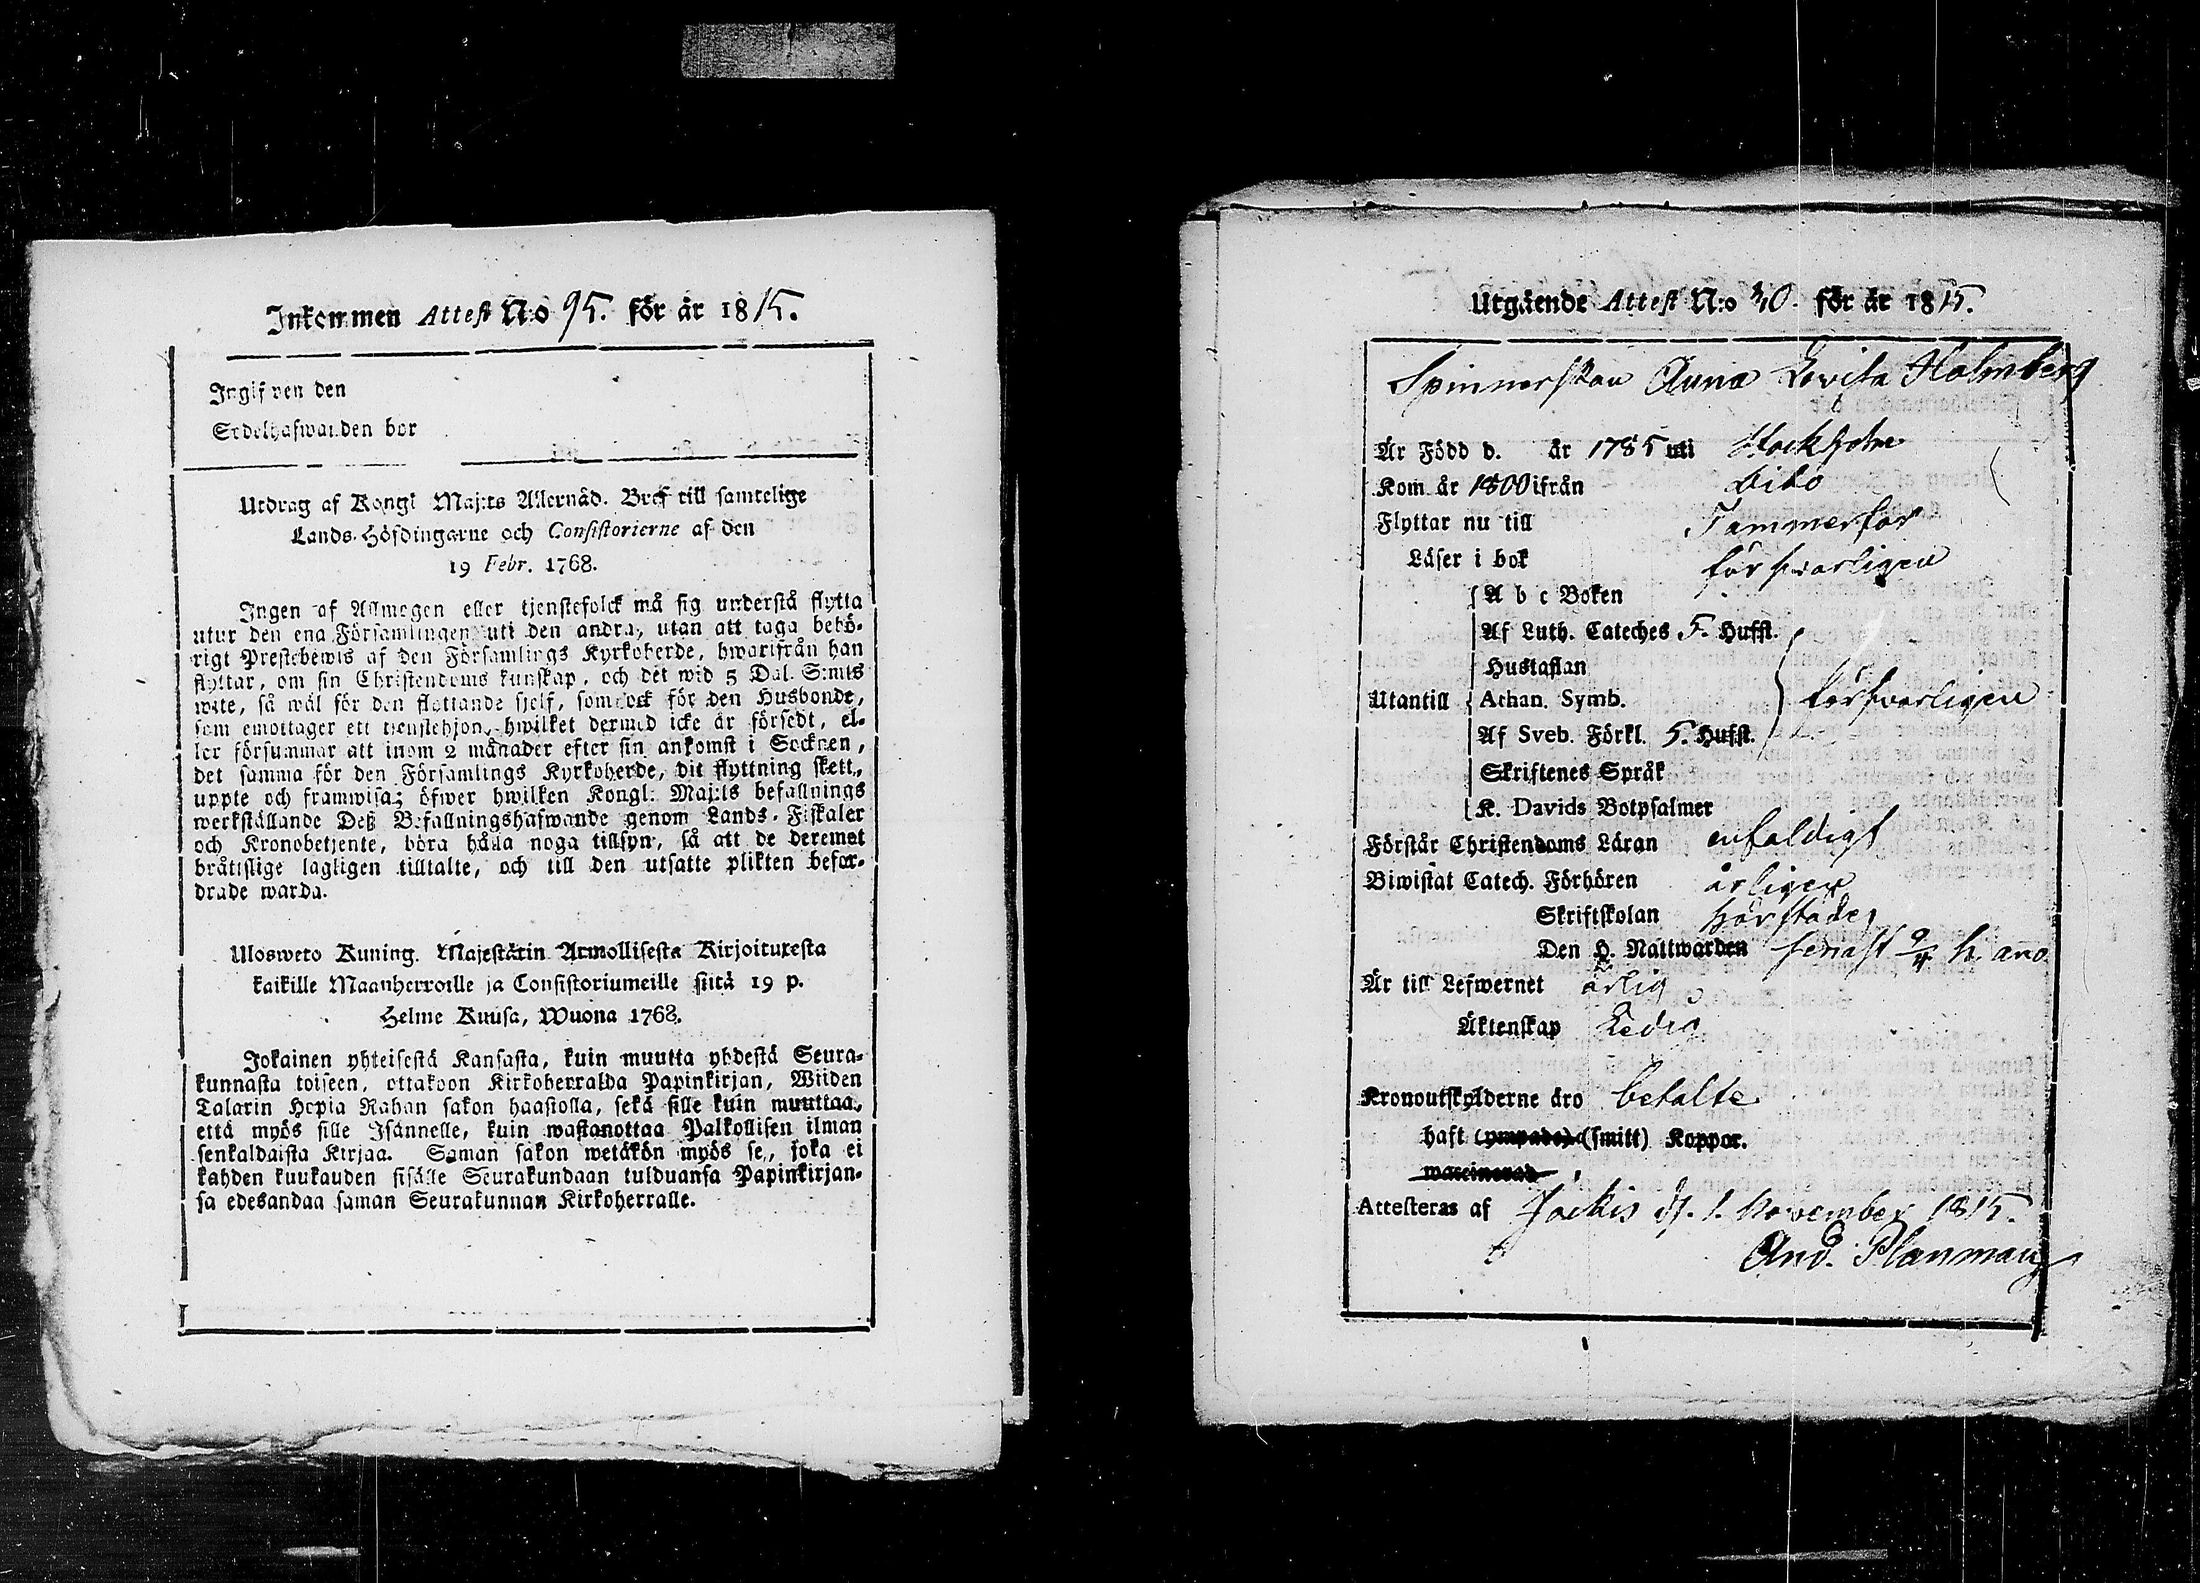 Inkommen Attest No 95. för år 1815.
Ingifven den
Sedelhafwanden bor
Utdrag af Kongl Maj:ts Allernåd. Bref till samtelige
Lands-Höfdingarne och Consistorierne af den
19 Febr. 1768.
Ingen af Allmogen eller tjenstefolck må sig understå flytta
utur den ena Församlingen uti den andra, utan att taga behö-
rigt Prestebewis af den Församlings Kyrkoherde, hwarifrån han
flyttar, om sin Christendoms kunskap, och det wid 5 Dal. S:mts
wite, så wäl för den flyttande sjelf, som ock för den Husbonde,
som emottager ett tjenstehjon, hwilket dermed icke är försedt, el-
ler försummar att inom 2 månader efter sin ankomst i Socknen,
det samma för den Församlings Kyrkoherde, dit flyttning skett,
uppte och framwisa; öfwer hwilken Kongl: Maj:ts befallnings
werkställande Deß Befallningshafwande genom Lands-Fiskaler
och Kronobetjente, böra hålla noga tillsyn, så att de deremot
bråttslige lagligen tilltalte, och till den utsatte plikten befor-
drade warda.
Ulosweto Kuning. Majestätin Armollisesta Kirjoituxesta
kaikille Maanherroille ja Consistoriumeille siitä 19 p.
Helme Kuusa, Wuona 1768.
Jokainen yhteisestä Kansasta, kuin muutta yhdestä Seura-
kunnasta toiseen, ottakoon Kirkoherralda Papinkirjan, Wiiden
Talarin Hopia Rahan sakon haastolla, sekä sille kuin muuttaa,
että myös sille Isännelle, kuin wastanottaa Palkollisen ilman
senkaldaista Kirjaa. Saman sakon wetäkön myös se, joka ei
kahden kuukauden sisälle Seurakundaan tulduansa Papinkirjan-
sa edesandaa saman Seurakunnan Kirkoherralle.
Utgående Attest N:o 30. för år 1815.
Spinnerskan Anna Lovisa Holmberg
Är Född d. år 1785 uti Stockholm
Kom år 1800 ifrån dito
Flyttar nu till Tammerfor
Läser i bok försvarligen
A b c Boken
Af Luth. Cateches 5. Hufst.
Hustaflan
Utantill Athan. Symb. försvarligen
Af Sveb. Förkl. 5. Hufst.
Skriftenes Språk
K. Davids Botpsalmer
Förstår Christendoms Läran enfaldigt
Biwistat Catech. Förhören årligen
Skriftskolan
Den H. Nattwarden senast h. anno
Är till Lefwernet ärlig
Äktenskap Ledig
Kronoutskylderne äro betalte
haft (ympade) (smitt) Koppor.
Attesteras af Jockis d. 1. November 1815.
And. Planman